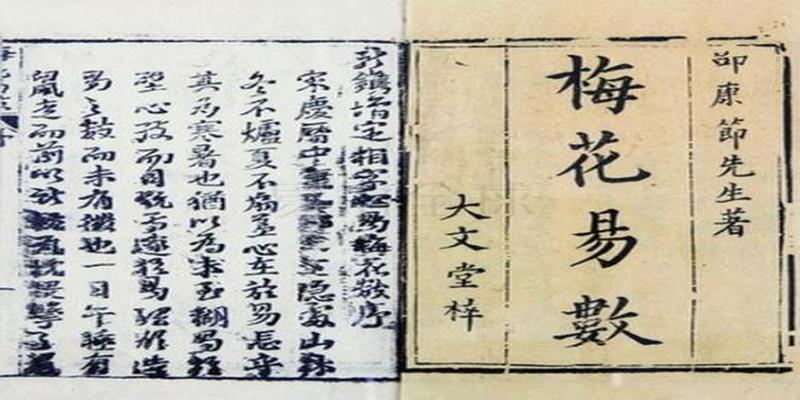 卲康節先生著
梅花易數
大文堂梓
新鐫增定相字心易梅花數序
宋慶曆中隱處山林
冬不爐夏不扇蓋心在於易忘乎
其為寒暑也猶以為未至糊易
壁心致而目玩焉邃於易理欲造
易之數而未有徵也一日午睡有
鼠走而前以所